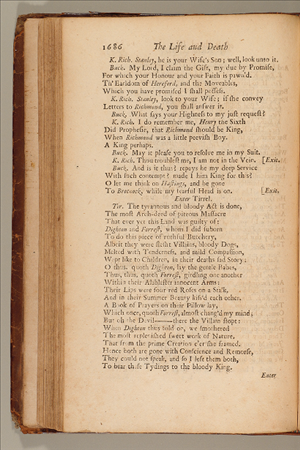 1686 The Life and Death
K. Rich. Stanley, he is your Wife's Son; well, look unto it.
Buck. My Lord, I claim the Gift, my due by Promise,
For which your Honour and your Faith is pawn'd.
Th' Earldom of Hereford, and the Moveables,
Which you have promised I shall possess.
K. Rich. Stanley, look to your Wife; if she convey
Letters to Richmond, you shall answer it.
Buck. What says your Highness to my just request?
K. Rich. I do remember me, Henry the Sixth
Did Prophesie, that Richmond should be King,
When Richmond was a little peevish Boy.
A King perhaps.
Buck. May it please you to resolve me in my Suit.
K. Rich. Thou troublest me, I am not in the Vein. [Exit.
Buck. And is it thus? repays he my deep Service
With such contempt? made I him King for this?
O let me think on Hastings, and be gone
To Brecnock, while my fearful Head is on. [Exit.
Enter Tirrel.
Tir. The tyrannous and bloody Act is done,
The most Arch-deed of piteous Massacre
That ever yet this Land was guilty of:
Dighton and Forrest, whom I did suborn
To do this piece of ruthful Butchery,
Albeit they were flesht Villains, bloody Dogs,
Melted with Tenderness, and mild Compassion,
Wept like to Children, in their deaths sad Story.
O thus, quoth Dighton, lay the gentle Babes,
Thus, thus, quoth Forrest, girdling one another
Within their Alablaster innocent Arms:
Their Lips were four red Roses on a Stalk,
And in their Summer Beauty kiss'd each other.
A Book of Prayers on their Pillow lay,
Which once, quoth Forrest, almost chang'd my mind;
But oh the Devil——there the Villain stopt:
When Dighton thus told on, we smothered
The most replenished sweet work of Nature,
That from the prime Creation e'er she framed.
Hence both are gone with Conscience and Remorse,
They could not speak, and so I left them both,
To bear these Tydings to the bloody King.
Enter